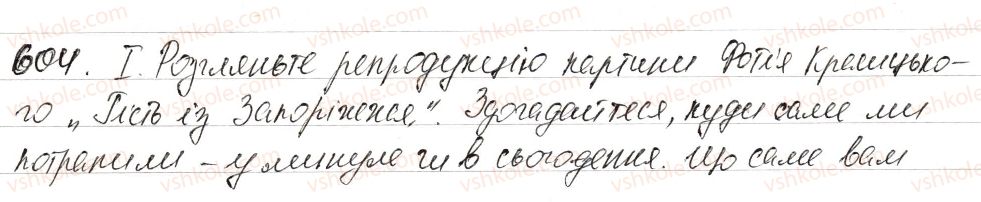 604. I. Розгляньте репродукцію картини Фотія Красицько-
го „Гість із Запоріжжя". Здогадайтеся, куди саме ми
потрапили – у минуле чи в сьогодення. Що саме вам